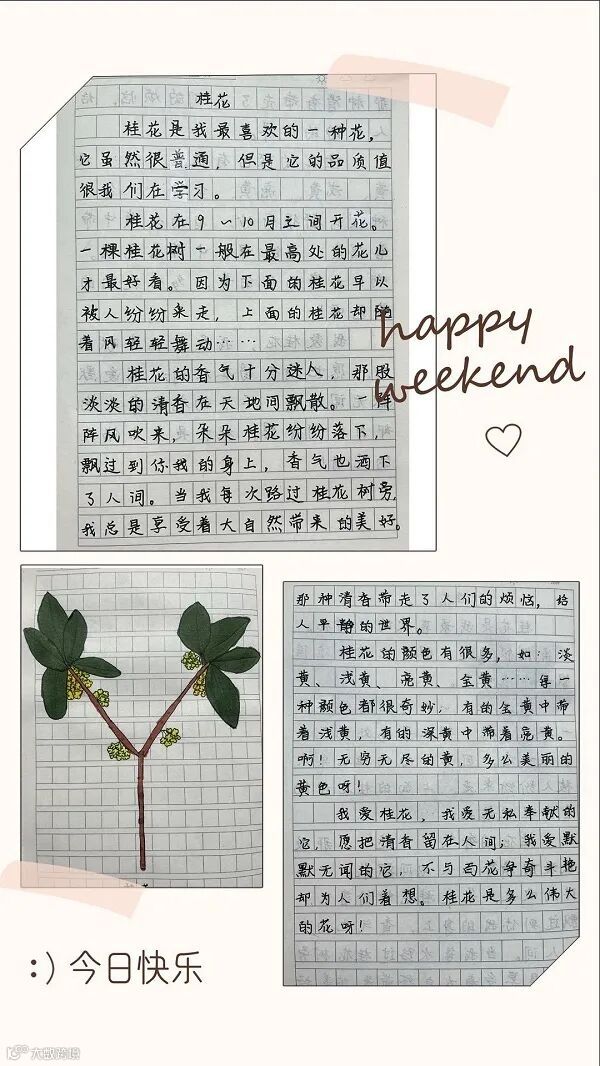 桂花
桂花是我最喜欢的一种花，
它虽然很普通，但是它的品质值
很我们在学习。
桂花在9～10月之间开花。
一棵桂花树一般在最高处的花儿
才最好看。因为下面的桂花早以
被人纷纷来走，上面的桂花却随
着风轻轻舞动……
桂花的香气十分迷人，那股
淡淡的清香在天地间飘散。一阵
阵风吹来，朵朵桂花纷纷落下，
飘过到你我的身上，香气也洒下
了人间。当我每次路过桂花树旁，
我总是享受着大自然带来的美好。
happy
weekend
那种清香带走了人们的烦恼，给
人平静的世界。
桂花的颜色有很多，如：淡
黄、浅黄、亮黄、金黄……每一
种颜色都很奇妙，有的金黄中带
着浅黄，有的深黄中带着亮黄。
啊！无穷无尽的黄，多么美丽的
黄色呀！
我爱桂花，我爱无私奉献的
它，愿把清香留在人间；我爱默
默无闻的它，不与百花争奇斗艳
却为人们着想。桂花是多么伟大
的花呀！
:) 今日快乐
大数跨境